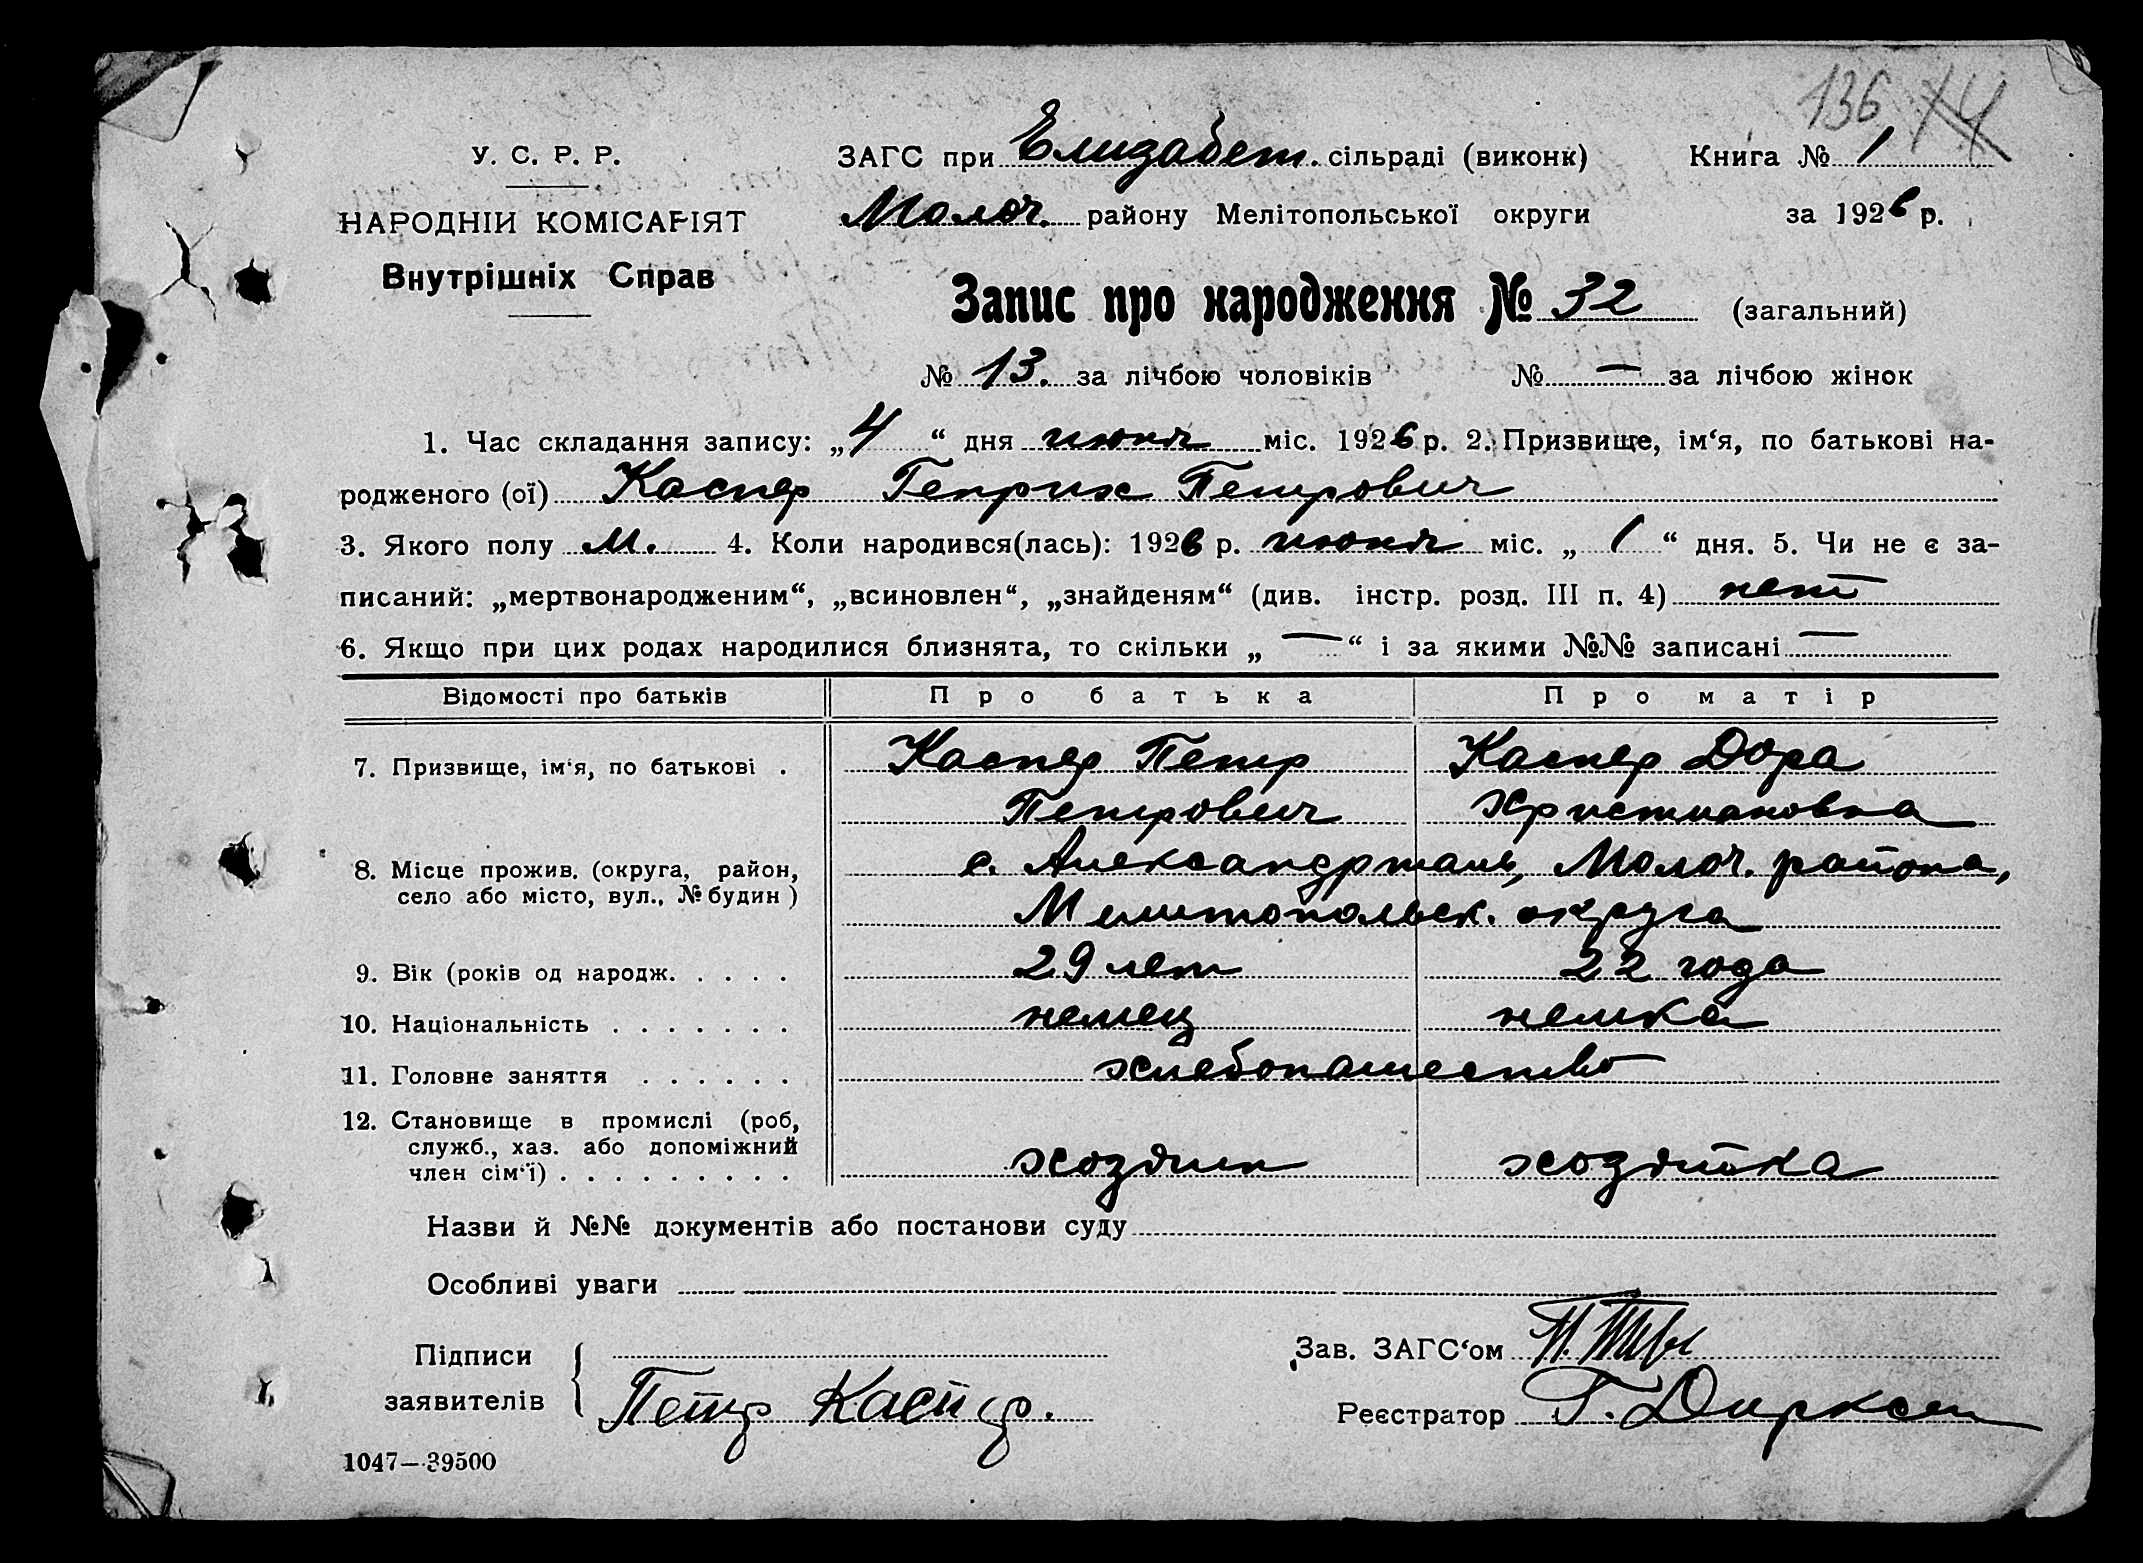 136 74
У. С. Р. Р.
ЗАГС при Елизабет. сільраді (виконк)
Книга № 1
НАРОДНІЙ КОМІСАРІЯТ
Молоч. району Мелітопольської округи
за 1926 р.
Внутрішніх Справ
Запис про народження № 32 (загальний)
№ 13. за лічбою чоловіків № — за лічбою жінок
1. Час складання запису: „4“ дня июня міс. 1926 р. 2. Призвище, ім‘я, по батькові на-
родженого (ої) Каспер Генрих Петрович
3. Якого полу м. 4. Коли народився(лась): 1926 р. июня міс. „1“ дня. 5. Чи не є за-
писаний: „мертвонародженим“, „всиновлен“, „знайденям“ (див. інстр. розд. III п. 4) нет
6. Якщо при цих родах народилися близнята, то скільки „ — “ і за якими №№ записані —
Відомості про батьків Про батька Про матір
7. Призвище, ім‘я, по батькові . Каспер Петр Каспер Дора
Петрович Христиановна
8. Місце прожив. (округа, район, с. Александрталь, Молоч. района,
село або місто, вул., № будин ) Мелитопольск. округа
9. Вік (років од народж. . . . . 29 лет 22 года
10. Національність . . . . . . . немец немка
11. Головне заняття . . . . . . хлебопашество
12. Становище в промислі (роб,
служб., хаз. або допоміжний
член сім‘ї) . . . . . . . . . хозяин хозяйка
Назви й №№ документів або постанови суду
Особливі уваги
Підписи
заявителів
Петр Каспер.
Зав. ЗАГС‘ом
Реєстратор Г. Дирксен
1047—39500